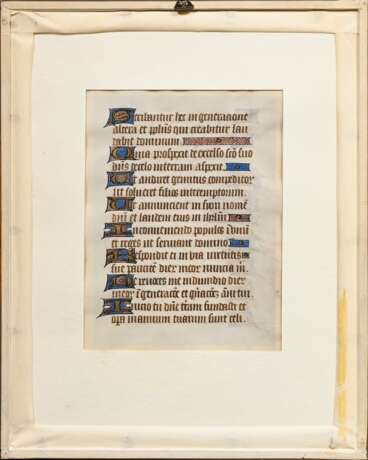 Scribantur hec in generacione
altera et pl'us qui creabitur lau
dabit dominum
Quia prospexit de excelso sc̄o suo
dn̄s de celo in terram aspexit
Ut audiret gemitus compeditor
ut solueret filios interemptorum
Ut annuncient in syon nomen
dn̄i et laudem eius in ihrl̄m
In conueniendo populos ī vnū
et reges ut seruiant domino
Respondit ei in via uirtutis
sue paucitatē dier meor nuncia m̄
Ne reuoces me in dimidio dier
meor ī generacōe et gn̄acōem anni tui
Inicio tu dn̄e t̄ram fundasti et
opera manuum tuarum sunt celi